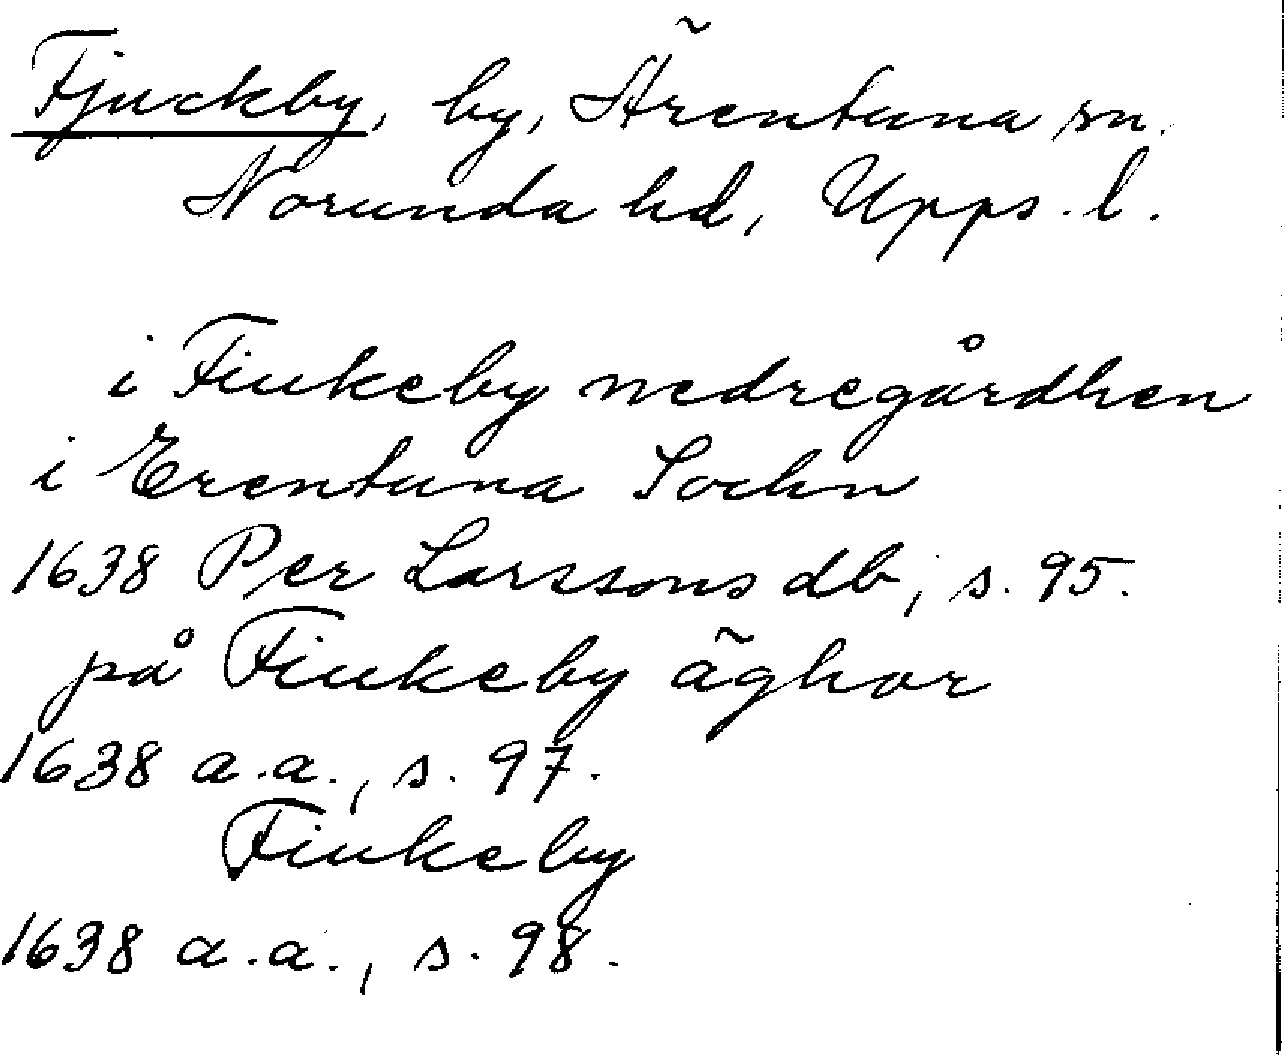 Fjuckby, by, Ärentuna sn.
Norunda hd, Upps. l.
i Fiukeby nedregårdhen
i Erentuna Sochn
1638 Per Larssons db, s. 95.
på Fiukeby äghor
1638 a.a., s. 97.
Fiukeby
1638 a.a., s. 98.